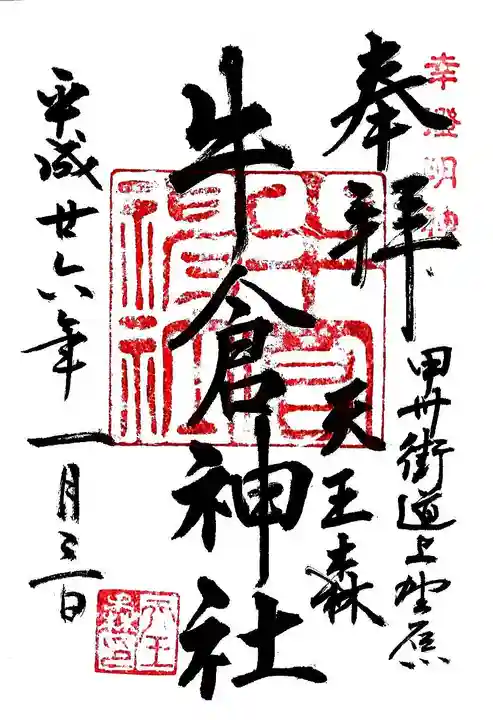 幸燈明神
奉拝
甲州街道上野原
天王森
牛倉神社
牛倉神社
平成廿六年一月三日
天王森印